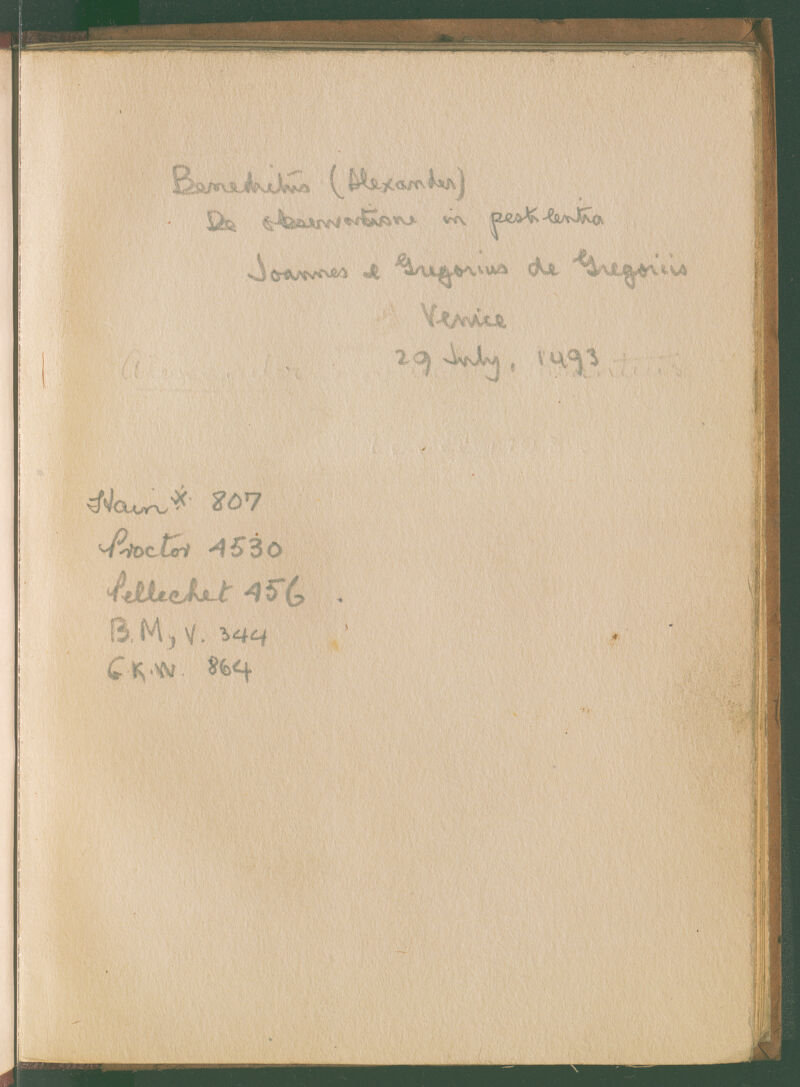 Benedictus (Alexander)
De observatione in pestilentia
Joannes e Gregorius de Gregoriis
Venice
29 July, 1493
Hain * 807
Proctor 4530
Pellechet 456 .
B.M, V. 344
G.K.W. 864